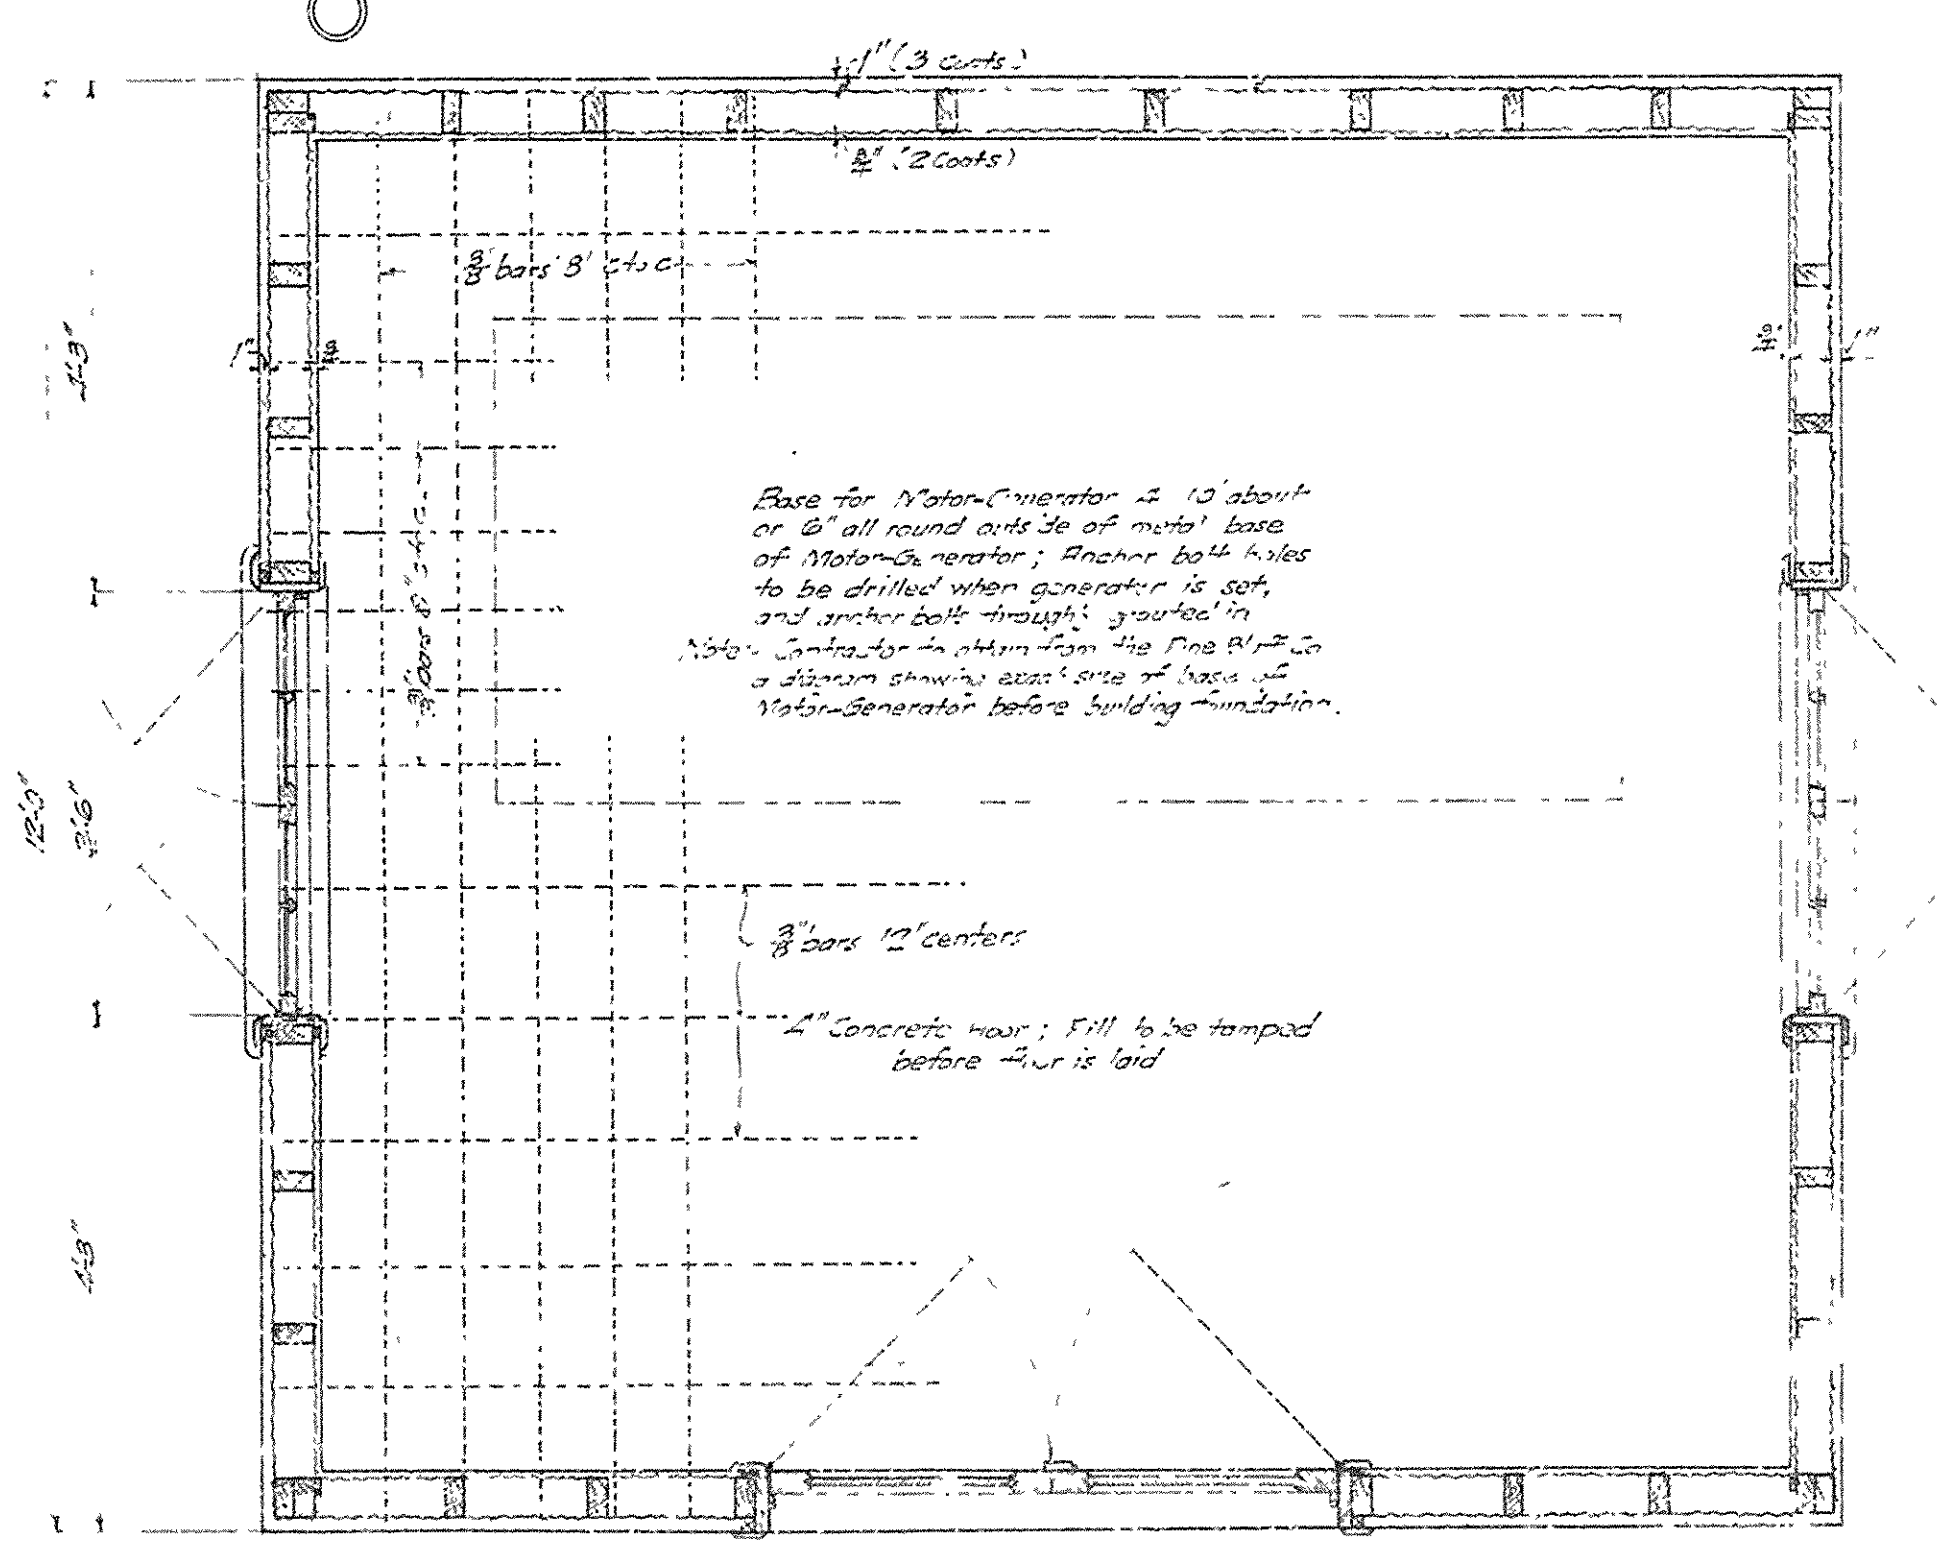 1" (3 coats)
3/4" (2 Coats)
3/8 bars 8" c to c
1"
3/4
3/4"
1"
4'-3"
3/8" bars 8" c to c.
Base for Motor-Generator 4 10 about
or 6" all round outside of metal base
of Motor-Generator; Anchor bolt holes
to be drilled when generator is set,
and anchor bolts through grouted in
Note:- Contractor to obtain from the Pine Bluff Co
a diagram showing exact size of base of
Motor-Generator before building foundation.
12'-0"
3'-6"
3/8" bars 12" centers
4" Concrete floor; Fill to be tamped
before floor is laid
4'-3"